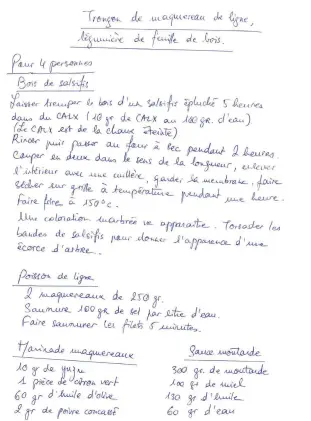 Tronçon de maquereau de ligne,
légumière de feuille de bois.
Pour 4 personnes
Bois de salsifis
Laisser tremper le bois d'un salsifis épluché 5 heures
dans du CALX (10 gr de CALX au 100 gr. d'eau)
(Le CALX est de la chaux éteinte)
Rincer puis passer au four à sec pendant 2 heures.
Couper en deux dans le sens de la longueur, enlever
l'intérieur avec une cuillère, garder la membrane, faire
sécher sur grille à température pendant une heure.
Faire frire à 150°C.
Une coloration marbrée va apparaître. Torsader les
bandes de salsifis pour donner l'apparence d'une
écorce d'arbre.
Poisson de ligne
2 maquereaux de 250 gr.
Saumure 100 gr de sel par litre d'eau.
Faire saumurer les filets 5 minutes.
Marinade maquereaux
10 gr de yuzu
1 pièce de citron vert
60 gr d'huile d'olive
2 gr de poivre concassé
Sauce moutarde
300 gr. de moutarde
100 gr de miel
130 gr d'huile
60 gr d'eau